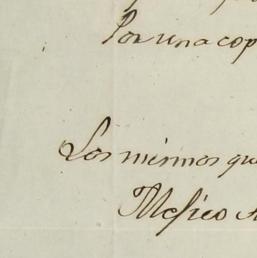 Por una cop
Los mismos que
Mexico